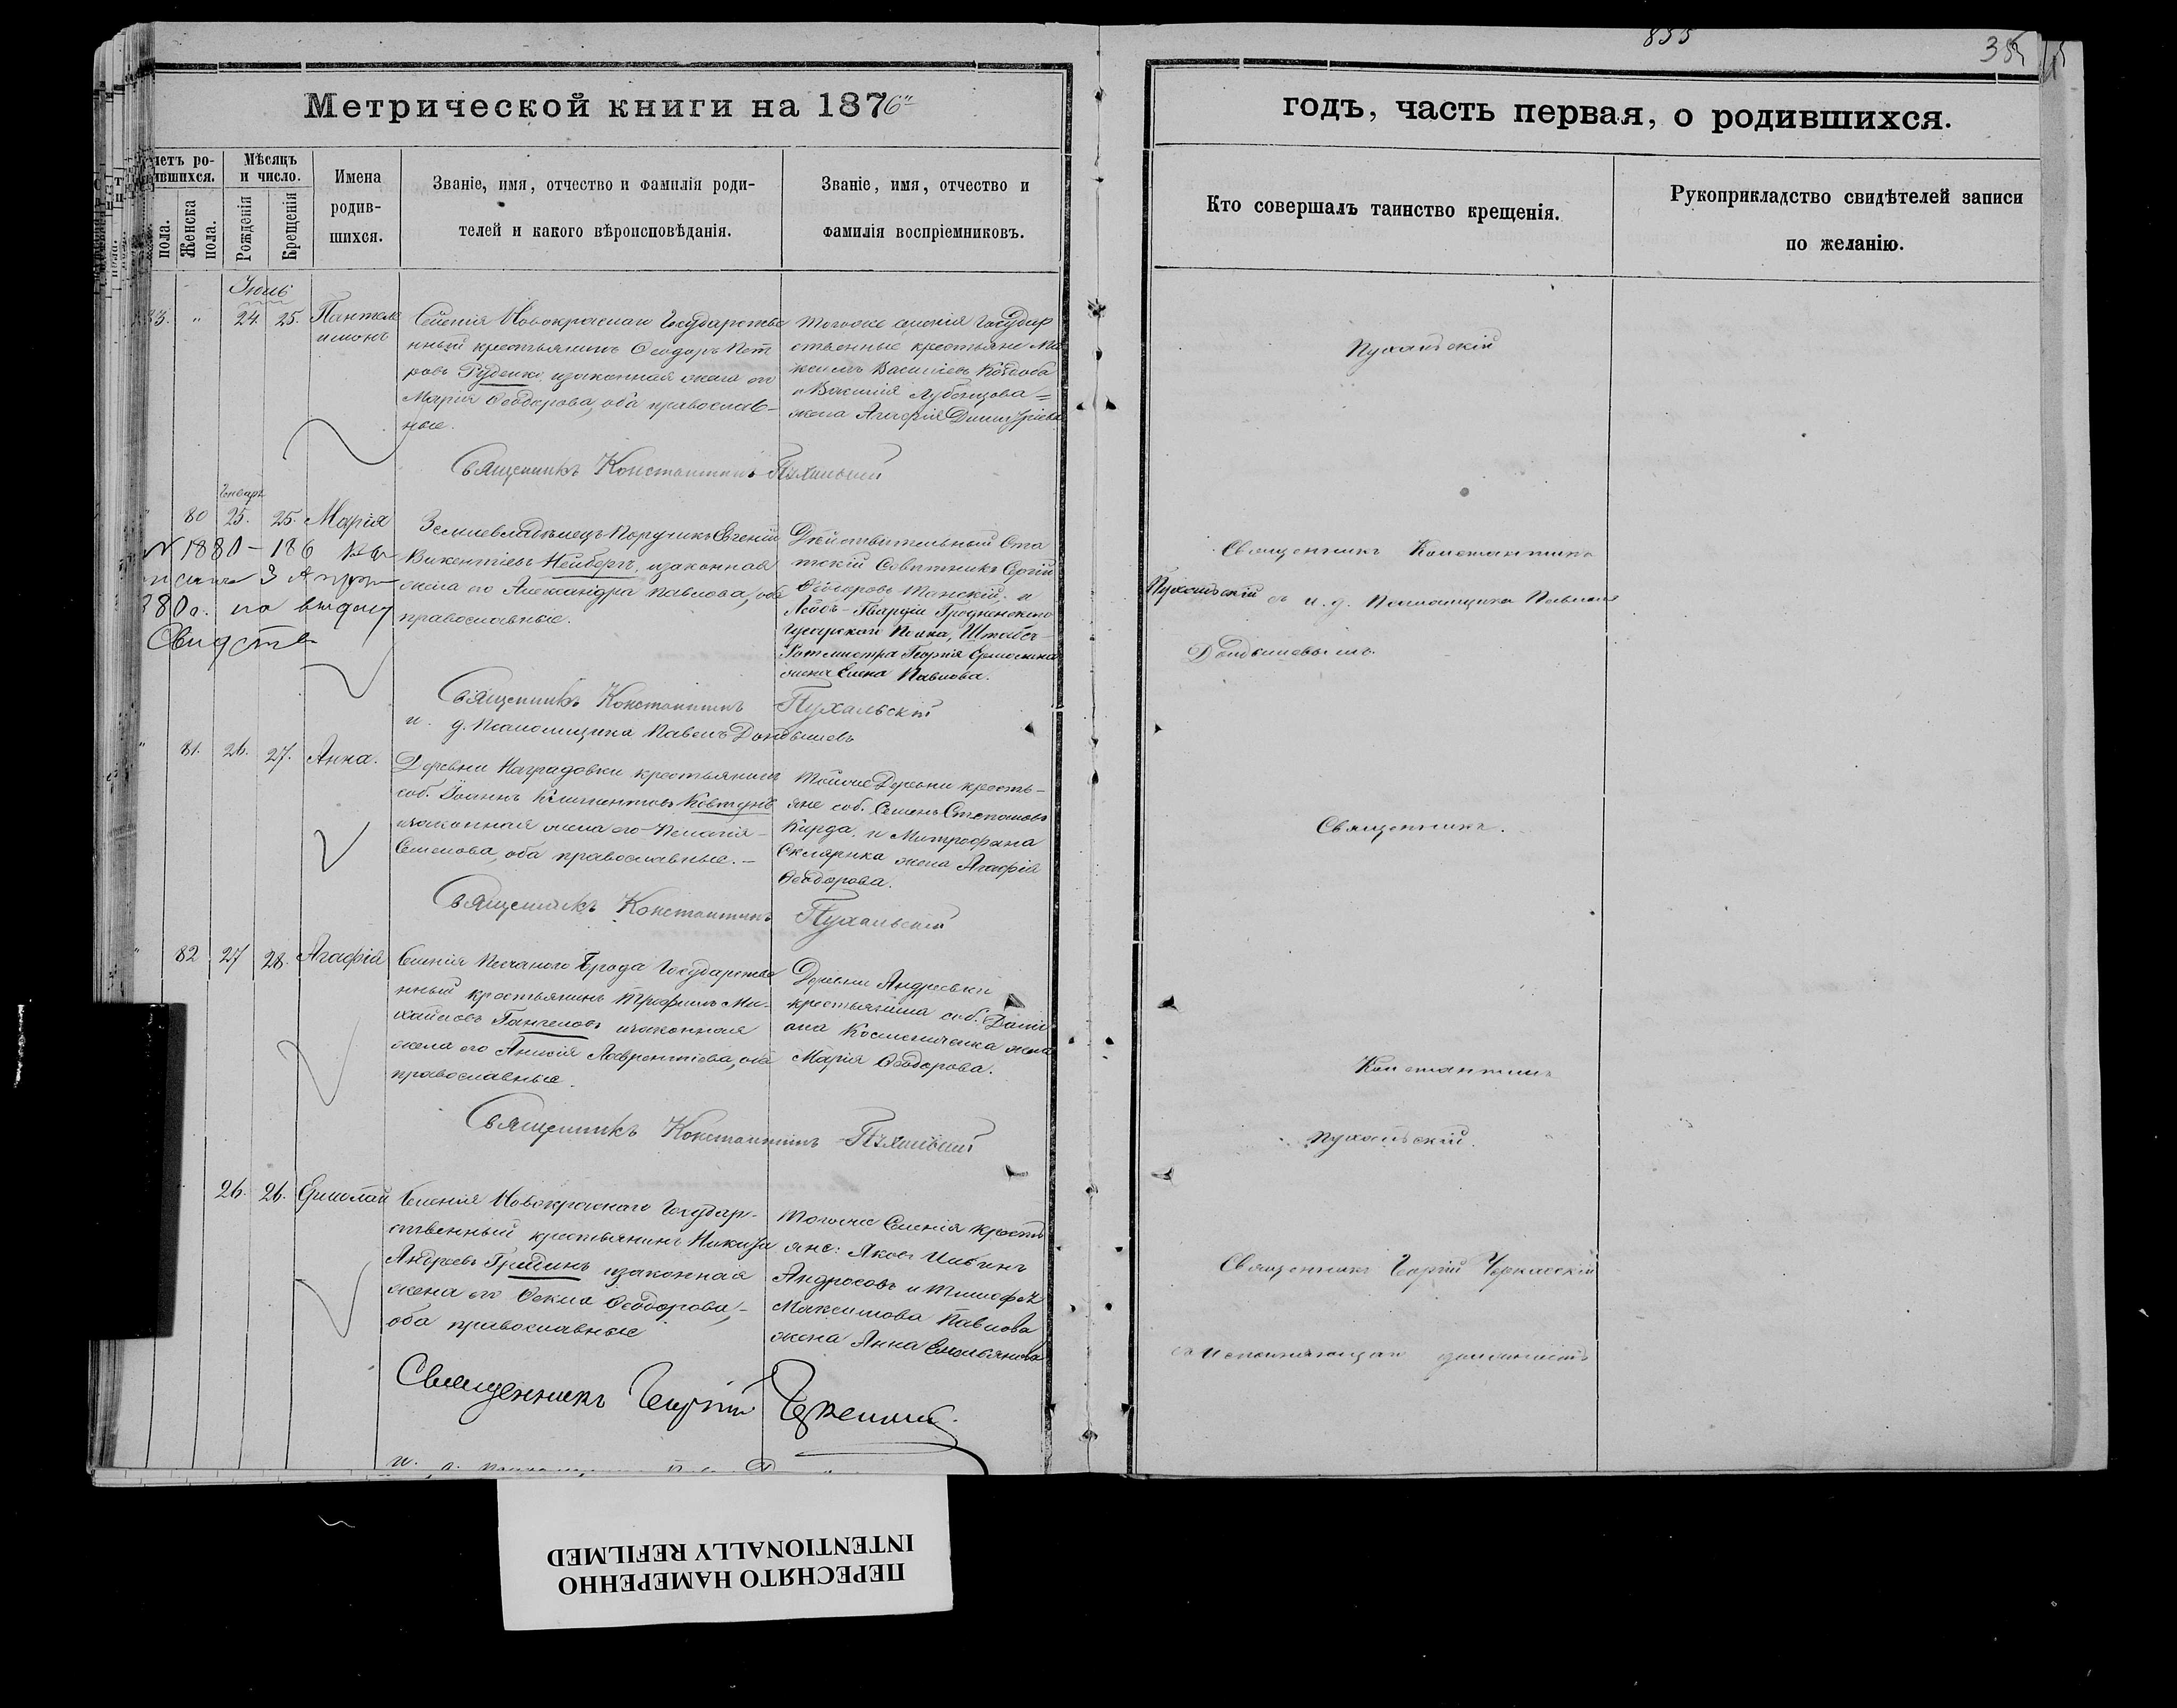 855
355
Метрической книги на 1876
годъ, часть первая, о родившихся.
Мѣсяцъ
и число.
Рожденія
Крещенія
пола.
Женска
пола.
Имена
родив-
шихся.
Званіе, имя, отчество и фамилія роди-
телей и какого вѣроисповѣданія.
Званіе, имя, отчество и
фамилія воспріемниковъ.
Кто совершалъ таинство крещенія.
Рукоприкладство свидѣтелей записи
по желанію.
Іюль
24. 25. Пантеле
имонъ
Селенія Новокраснаго Государстве
нный крестьянинъ Ѳеодоръ Пет
ровъ Руденко, изаконная жена его
Марія Ѳеодорова, оба православ-
ные.
Тогоже селенія Государ
ственные крестьяне Ма
ксимъ Васильевъ
и Василія Лубенцова
жена Агафія Димитріева
Священникъ Константинъ Пухальскій
Пухальскій
Январь
80 25. 25. Марія
Землевладѣлецъ Поручикъ Евгеній
Викентіевъ Нейбергъ, изаконная
жена его Александра Павлова, оба
православные.
Дѣйствительный Ста
тскій Совѣтникъ Сергій
Ѳеодоровъ Танскій и
Лейбъ-Гвардіи Гродненскаго
Гусарскаго Полка, Штабсъ-
Ротмистра Георгія
жена Елена Павлова.
N 1880 - 186
380. по выдачу
Свидѣте
Священникъ Константинъ Пухальскій
и. д. Псаломщика Павелъ
Священникъ Константинъ
Пухальскій съ и. д. Псаломщика Павломъ
81. 26. 27. Анна.
Деревни Наградовки крестьянинъ
соб. Іоаннъ Климентовъ Ковтунъ
изаконная жена его Пелагія
Семенова, оба православные.
Тойже Деревни кресть-
яне соб. Семенъ Степановъ
Кирда и Митрофана
Скляренка жена Агафія
Ѳеодорова.
Священникъ Константинъ Пухальскій
Священникъ.
82 27 28. Агафія
Селенія Песчаного Брода Государстве
нный крестьянинъ Трофимъ Ми-
хайловъ Гангеловъ изаконная
жена его Анисія Лаврентіева, оба
православные.
Деревни Андреевки
крестьянина соб. Дані
ила жена
Марія Ѳеодорова.
Священникъ Константинъ Пухальскій
Константинъ
Пухальскій.
26. 26. Ермолай
Селенія Новокраснаго Государ-
ственный крестьянинъ Никита
Андреевъ Гришинъ изаконная
жена его Ѳекла Ѳеодорова,
оба православные
Тогоже Селенія кресть
яне: Яковъ
Андросовъ и Тимофея
Максимова Павлова
жена Анна Емельянова
Священникъ Георгій Черкасскій
Священникъ Георгій Черкасскій
съ Исполняющимъ должность
и. д.
ПЕРЕСНЯТО НАМЕРЕННО
INTENTIONALLY REFILMED